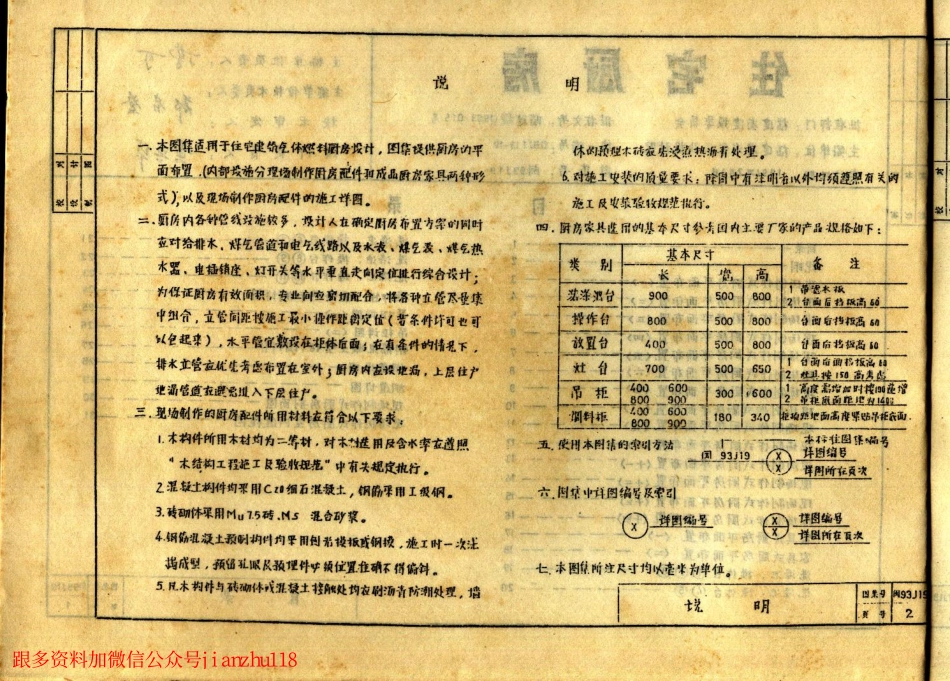 说 明
一、本图集适用于住宅建筑气体燃料厨房设计，图集提供厨房的平
面布置，(内部设施分现场制作厨房配件和成品厨房家具两种形
式)，以及现场制作厨房配件的施工详图。
二、厨房内各种管线设施较多，设计人在确定厨房布置方案的同时
应对给排水、煤气管道和电气线路以及水表、煤气表、煤气热
水器、电插销座、灯开关等水平垂直走向定位进行综合设计；
为保证厨房有效面积，专业间应密切配合，将各种立管尽量集
中组合，立管间距按施工最小操作距离定位(若条件许可也可
以包起来)，水平管宜敷设在柜体后面；在有条件的情况下，
排水立管应优先考虑布置在室外；厨房内应设地漏，上层住户
地漏管道应避免进入下层住户。
三、现场制作的厨房配件所用材料应符合以下要求：
1.木构件所用木材均为二等材，对木材选用及含水率应遵照
“木结构工程施工及验收规范”中有关规定执行。
2.混凝土构件均采用C20细石混凝土，钢筋采用Ⅰ级钢。
3.砖砌体采用Mu7.5砖、M5 混合砂浆。
4.钢筋混凝土预制构件均采用刨光模板或钢模，施工时一次浇
捣成型，预留孔眼及预埋件必须位置准确不得偏斜。
5.凡木构件与砖砌体或混凝土接触处均应刷沥青防潮处理，墙
体的预埋木砖应先浸点热沥青处理。
6.对施工安装的质量要求：除图中有注明者以外均须遵照有关的
施工及安装验收规范执行。
四、厨房家具选用的基本尺寸参考国内主要厂家的产品规格如下：
类 别 基本尺寸 备 注
长 宽 高
洗涤池台 900 500 800 1 带滤水板
2 台面后挡板高60
操作台 800 500 800 台面后挡板高60
放置台 400 500 800 台面后挡板高60
灶 台 700 500 650 1 台面后面挡板高60
2 灶具按150高考虑
吊 柜 400 600 800 900 300 600 1 高度需增加时按100递增
2 吊柜底面距地为1400
调料柜 400 600 800 900 180 340 柜底距地面高度紧贴吊柜底面
五、使用本图集的索引方法
闽93J19 X X
本标准图集编号
详图编号
详图所在页次
六、图集中详图编号及索引
X 详图编号
X X 详图编号
详图所在页次
七、本图集所注尺寸均以毫米为单位。
说 明
图集号 闽93J19
页 号 2
跟多资料加微信公众号jianzhu118